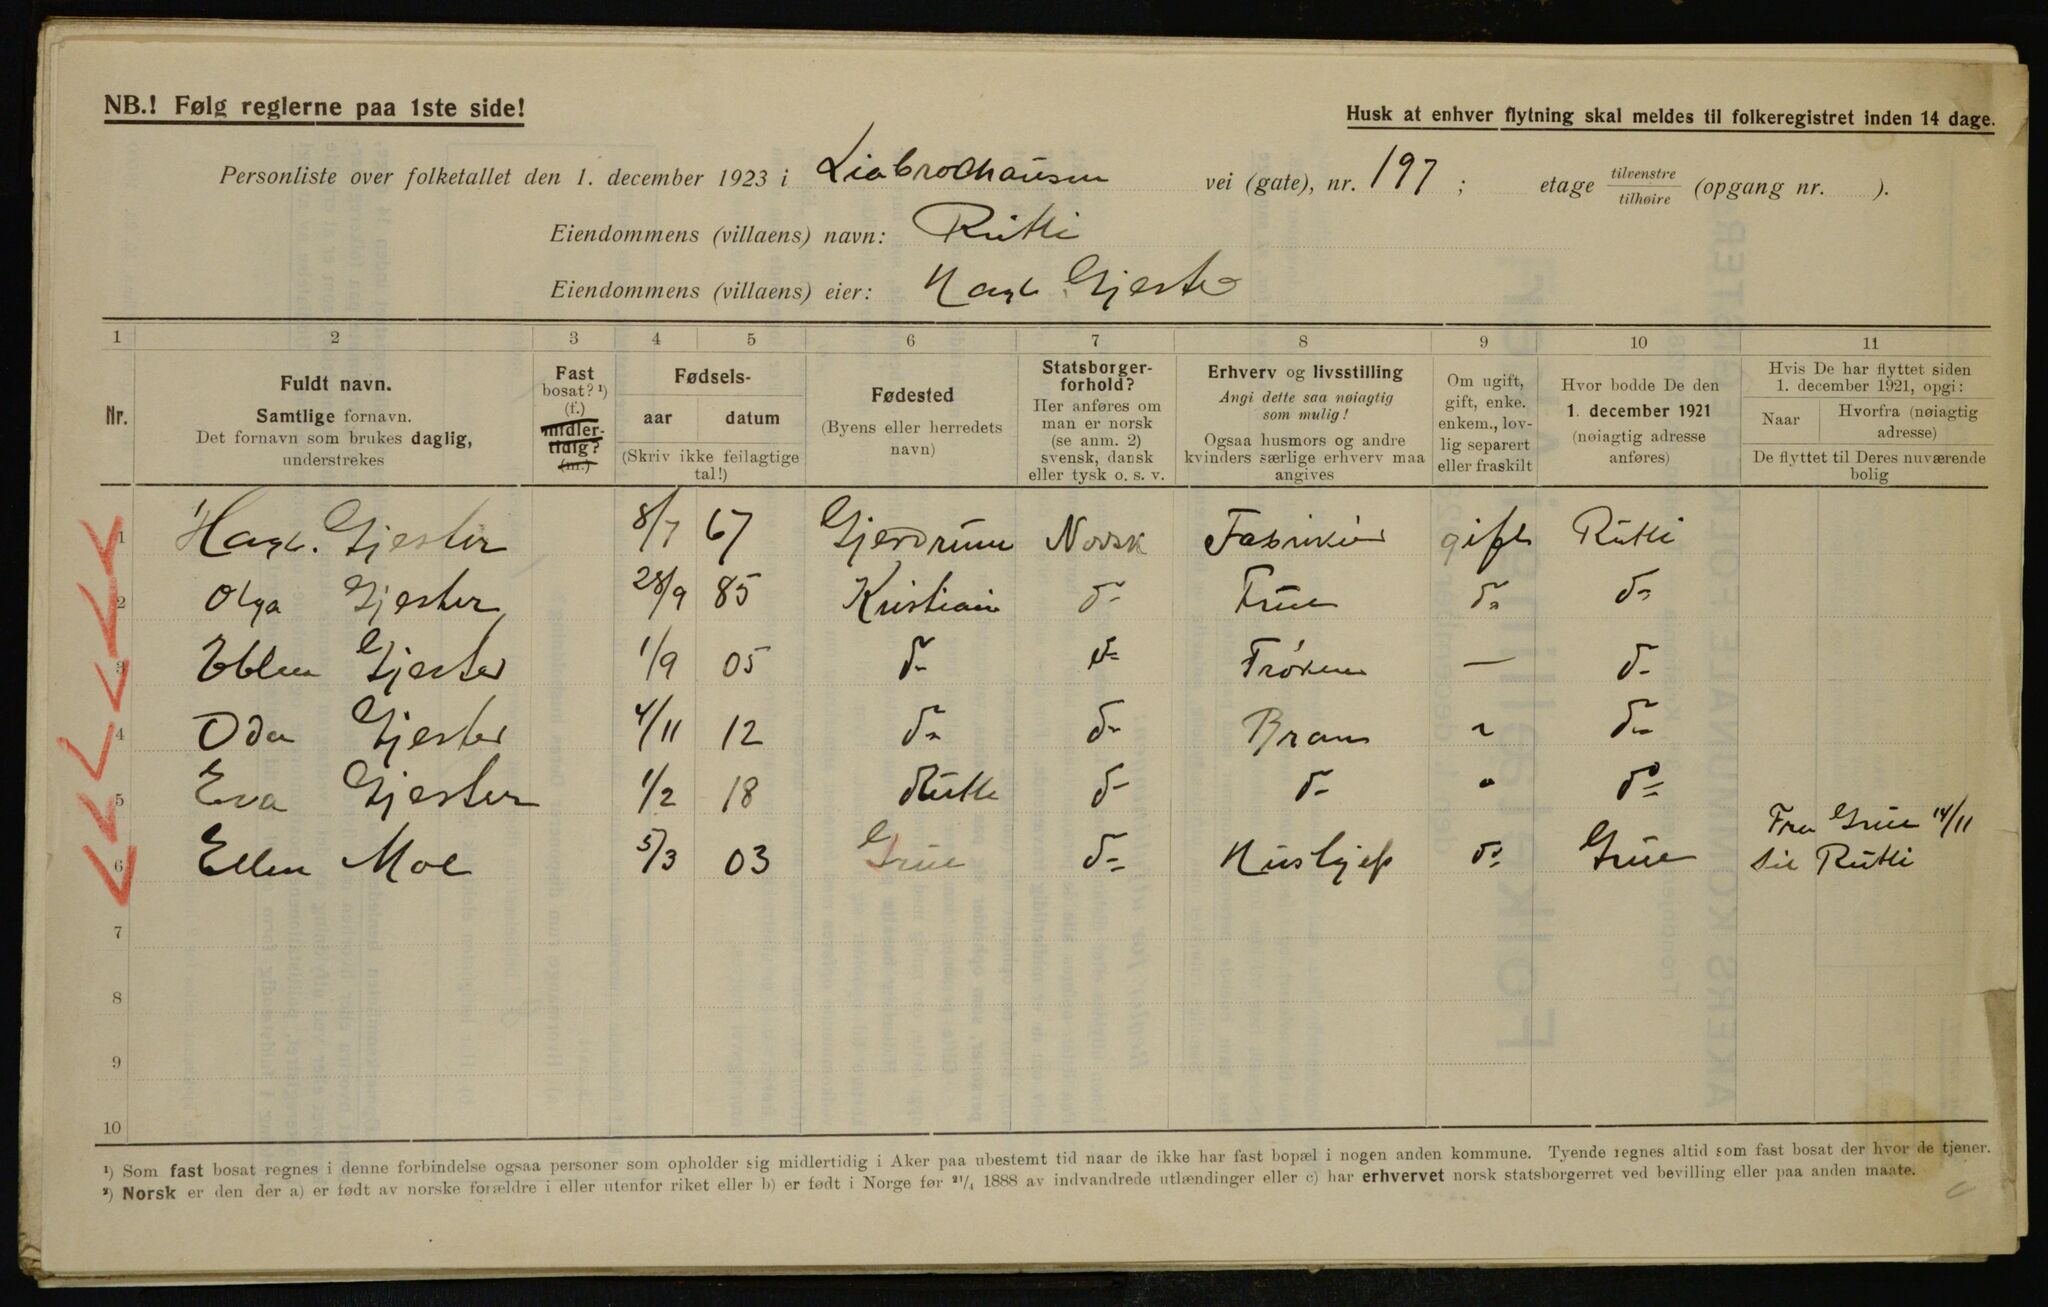 NB.! Følg reglerne paa 1ste side!
Husk at enhver flytning skal meldes til folkeregistret inden 14 dage.
Personliste over folketallet den 1. december 1923 i Liabrochausen vei (gate), nr. 197 ; etage tilvenstre tilhøire (opgang nr. ).
Eiendommens (villaens) navn: Rütli
Eiendommens (villaens) eier: Hagb. Gjester
1 2 3 4 5 6 7 8 9 10 11
Nr.
Fuldt navn.
Samtlige fornavn.
Det fornavn som brukes daglig,
understrekes
Fast
bosat? ¹)
(f.)
midler-
tidig?
(m.)
Fødsels-
aar datum
(Skriv ikke feilagtige
tal!)
Fødested
(Byens eller herredets
navn)
Statsborger-
forhold?
Her anføres om
man er norsk
(se anm. 2)
svensk, dansk
eller tysk o. s. v.
Erhverv og livsstilling
Angi dette saa nøiagtig
som mulig!
Ogsaa husmors og andre
kvinders særlige erhverv maa
angives
Om ugift,
gift, enke.
enkem., lov-
lig separert
eller fraskilt
Hvor bodde De den
1. december 1921
(nøiagtig adresse
anføres)
Hvis De har flyttet siden
1. december 1921, opgi:
Naar Hvorfra (nøiagtig
adresse)
De flyttet til Deres nuværende
bolig
1 Hagb. Gjester 8/7 67 Gjerdrum Norsk Fabrikør gift Rütli
2 Olga Gjester 28/9 85 Kristiania do Frue do do
3 Gjester 1/9 05 do do Frøken — do
4 Oda Gjester 4/11 12 do do Barn " do
5 Eva Gjester 1/2 18 Rütli do do " do
6 Ellen Moe 5/3 03 Grue do Hushjelp do Grue Fra Grue 14/11
til Rütli
7
8
9
10
¹) Som fast bosat regnes i denne forbindelse ogsaa personer som opholder sig midlertidig i Aker paa ubestemt tid naar de ikke har fast bopæl i nogen anden kommune. Tyende regnes altid som fast bosat der hvor de tjener.
²) Norsk er den der a) er født av norske forældre i eller utenfor riket eller b) er født i Norge før 21/4 1888 av indvandrede utlændinger eller c) har erhvervet norsk statsborgerret ved bevilling eller paa anden maate.